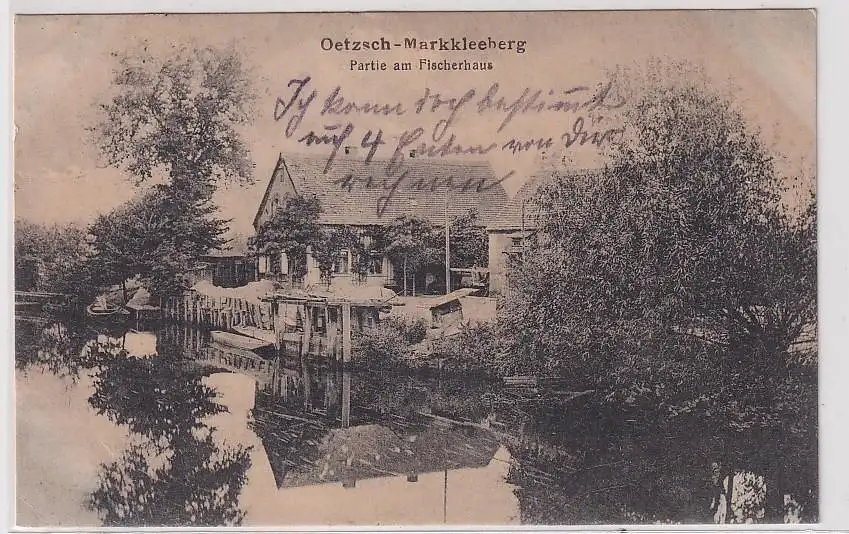 Oetzsch-Markkleeberg
Partie am Fischerhaus
Ich kann doch bestimmt
auf 4 von Dir
rechnen